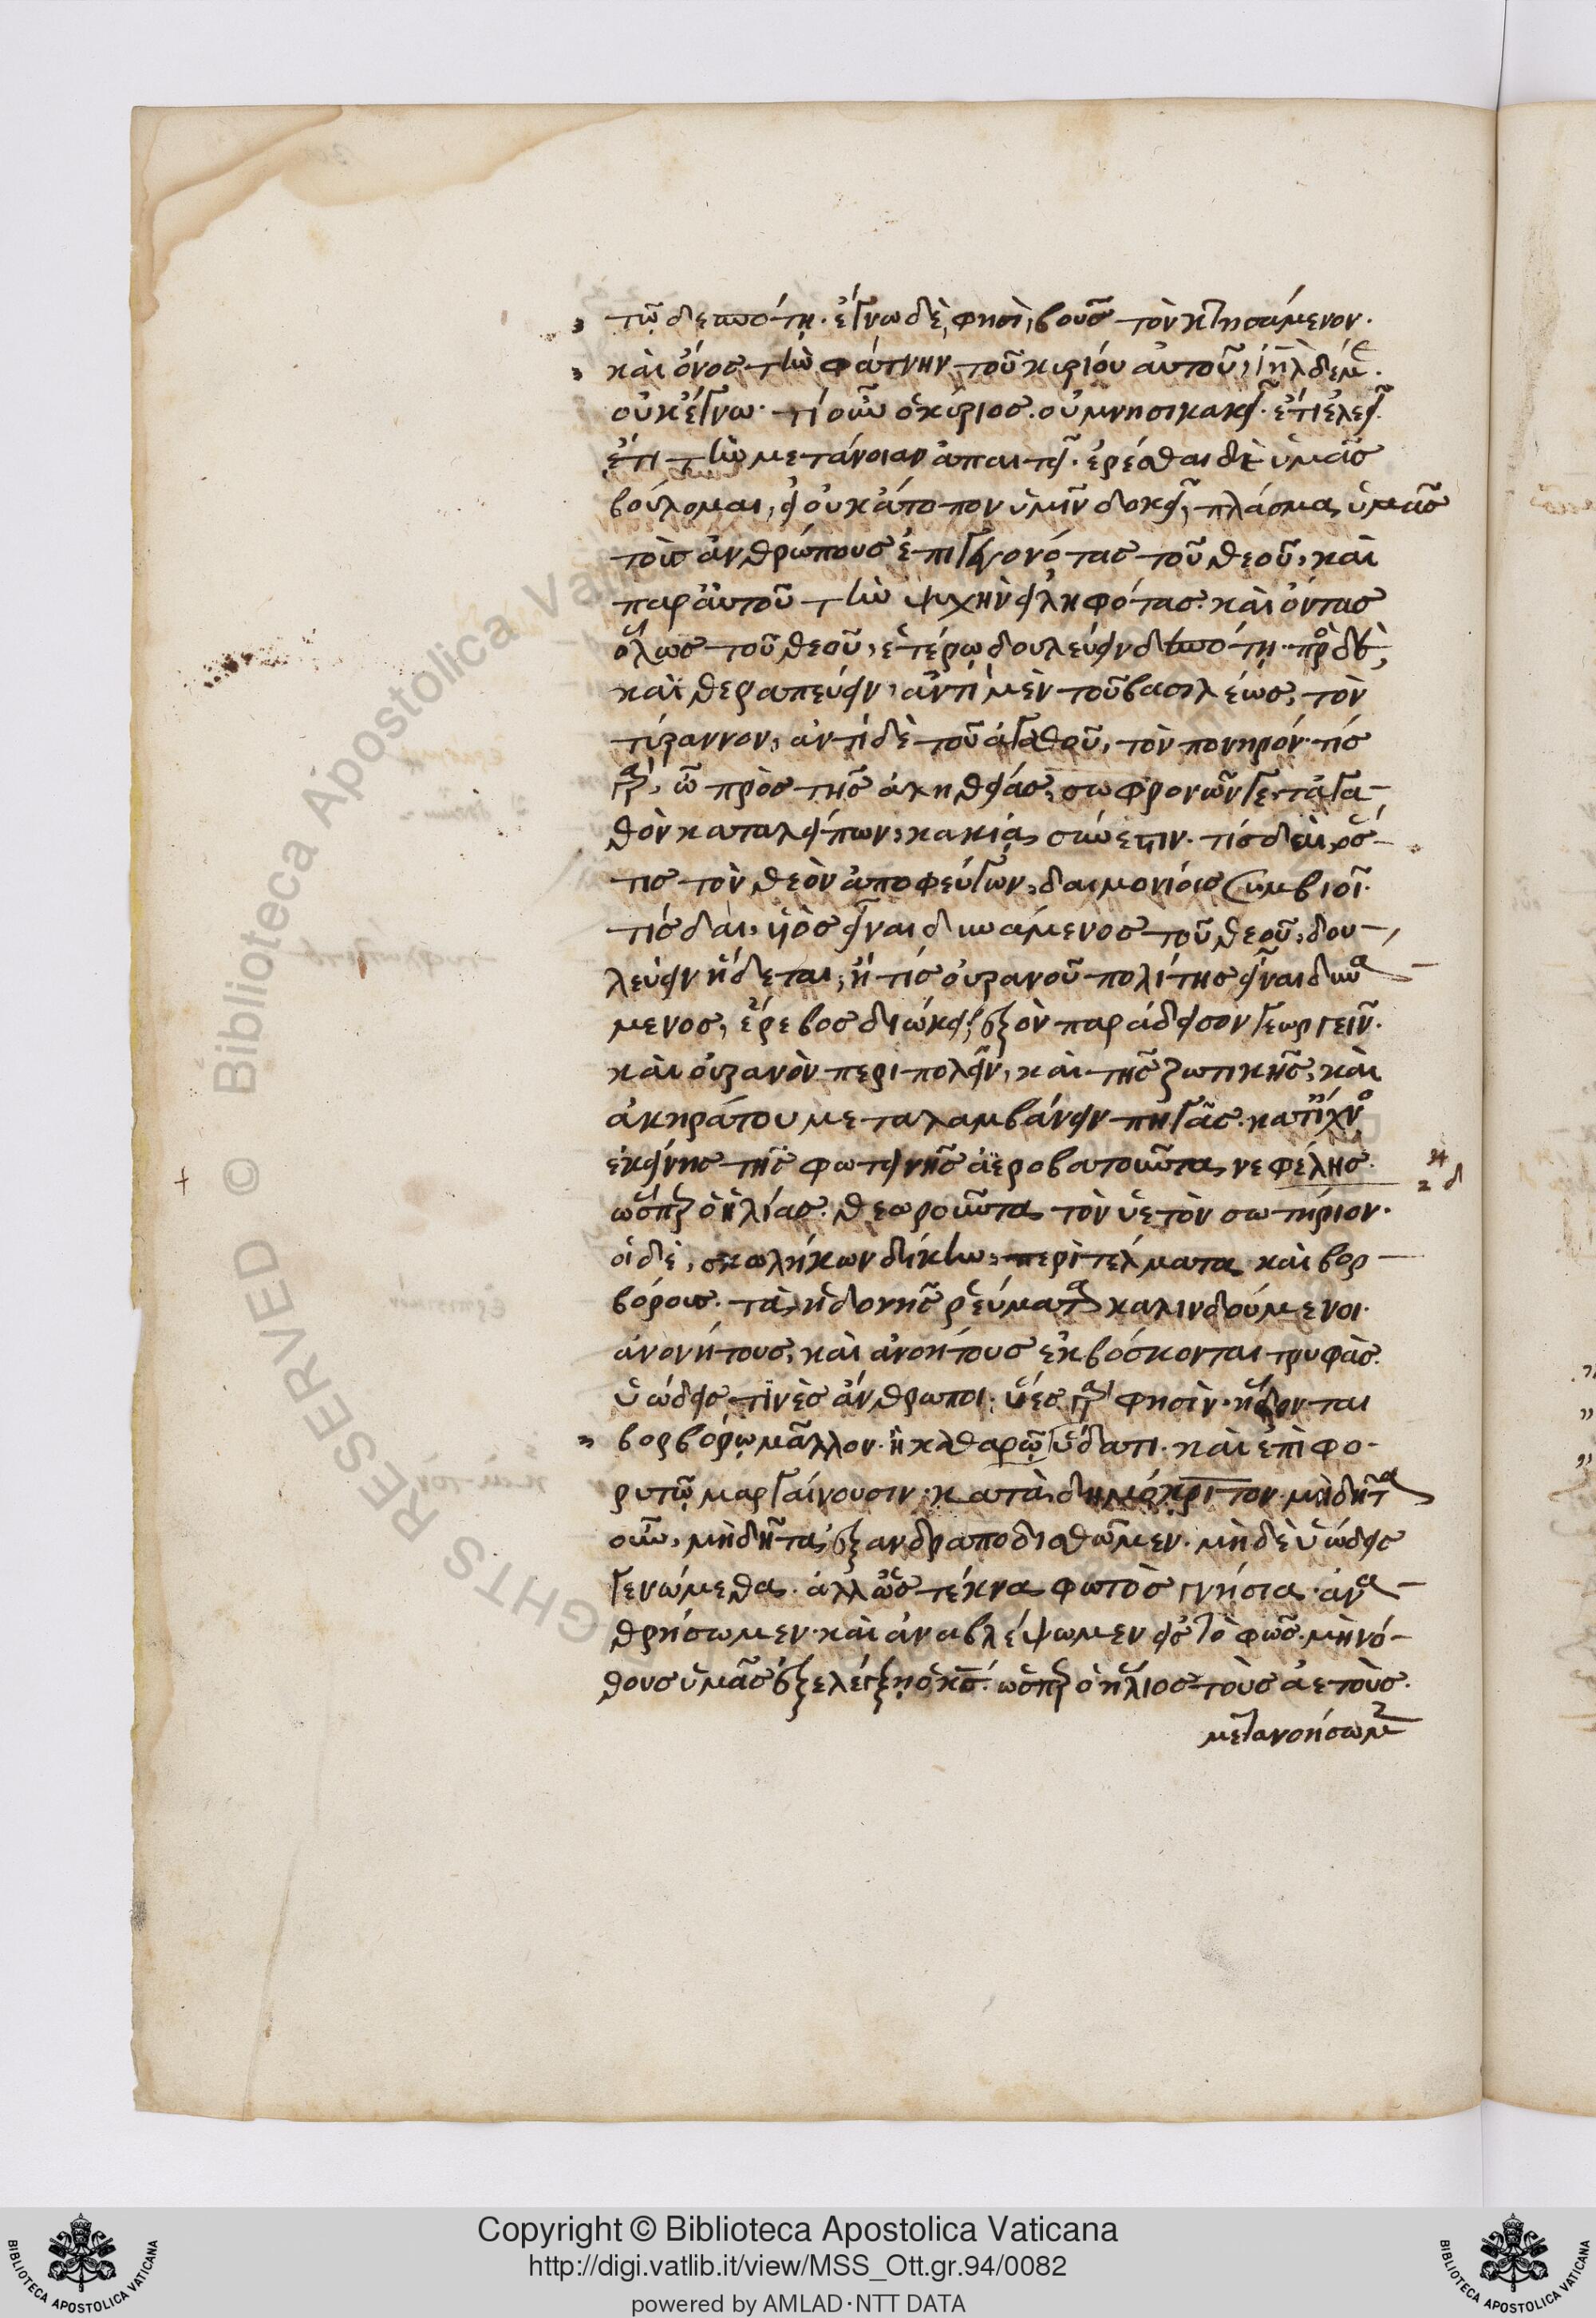 τῷ δεσπότῃ. ἔγνω δὲ, φησὶ, βοῦς τὸν κτησάμενον.
καὶ ὄνος τὴν φάτνην τοῦ κυρίου αὐτοῦ, ἰηλ δέ με.
οὐκ ἔγνω. τί οὖν ὁ κύριος. οὐ μνησικακεῖ. ἔτι ἐλεεῖ.
ἔτι τὴν μετάνοιαν ἀπαιτεῖ. ἐρέσθαι δὲ ὑμᾶς
βούλομαι, εἰ οὐκ ἄτοπον ὑμῖν δοκεῖ, πλάσμα ὑμᾶς
τοὺς ἀνθρώπους ἐπιγεγονότας τοῦ θεοῦ, καὶ
παρ' αὐτοῦ τὴν ψυχὴν εἰληφότας. καὶ ὄντας
ὅλως τοῦ θεοῦ, ἑτέρῳ δουλεύειν δεσπότῃ. πρὸς δὲ,
καὶ θεραπεύειν, ἀντὶ μὲν τοῦ βασιλέως, τὸν
τύραννον, ἀντὶ δὲ τοῦ ἀγαθοῦ, τὸν πονηρόν. τίς
γὰρ, ὦ πρὸς τῆς ἀληθείας, σωφρονῶν γε, τἀγα-
θὸν καταλείπων, κακίᾳ σύνεστιν. τίς δὲ αἱρόσ-
τις τὸν θεὸν ἀποφεύγων, δαιμονίοις συμβιοῖ.
τίς δαὶ, υἱὸς εἶναι δυνάμενος τοῦ θεοῦ, δου-
λεύειν ἥδεται, ἢ τίς οὐρανοῦ πολίτης εἶναι δυνα
μενος, ἔρεβος διώκει, ἐξὸν παράδεισον γεωργεῖν.
καὶ οὐρανὸν περιπολεῖν, καὶ τῆς ζωτικῆς, καὶ
ἀκηράτου μεταλαμβάνειν πηγᾶς. κατ' ἴχνος
ἐκείνης τῆς φωτεινῆς ἀεροβατοῦντα νεφέλης.
ὥσπερ ὁ ἠλίας. θεωροῦντα τὸν ὑετὸν σωτήριον.
οἱ δὲ, σκωλήκων δίκην, περὶ τέλματα καὶ βορ-
βόρους. τὰ ἡδονῆς ῥεύματα καλινδούμενοι.
ἀνονήτους, καὶ ἀνοήτους ἐκβόσκονται τρυφάς.
ὑώδεις τινὲς ἄνθρωποι. ὕες γάρ φησὶν. ἥδονται
βορβόρῳ μᾶλλον. ἢ καθαρῷ ὕδατι. καὶ ἐπὶ φο-
ρυτῷ μαργαίνουσιν. κατὰ δημόκριτον. μὴ δῆτα
οὖν, μὴ δῆτα ἐξανδραποδισθῶμεν. μὴ δὲ ὑώδεις
γενώμεθα. ἀλλ' ὡς τέκνα φωτὸς γνήσια. ἀνα-
θρήσωμεν. καὶ ἀναβλέψωμεν εἰς τὸ φῶς. μὴ νό-
θους ὑμᾶς ἐξελέγξῃ ὁ κς. ὥσπερ ὁ ἥλιος τοὺς ἀετούς.
μετανοήσωμεν
Copyright © Biblioteca Apostolica Vaticana
http://digi.vatlib.it/view/MSS_Ott.gr.94/0082
powered by AMLAD·NTT DATA